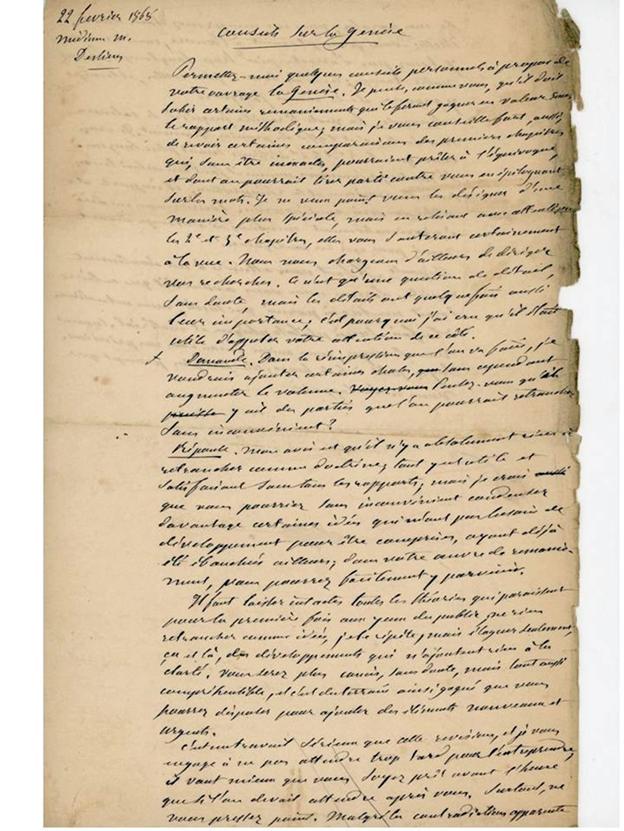 22 février 1868
médium M.
Desliens
Conseils sur la Genèse
Permettez-moi quelques conseils personnels à propos de
votre ouvrage la Genèse. Je pense, comme vous, qu'il doit
subir certains remaniements qui le feront gagner en valeur sous
le rapport méthodique; mais je vous conseille fort, aussi,
de revoir certaines comparaisons des premiers chapitres
qui, sans être inexactes, pourraient prêter à l'équivoque,
et dont on pourrait tirer parti contre vous en épiloguant
sur les mots. Je ne veux point vous les désigner d'une
manière plus spéciale, mais en relisant avec attention
les 2e et 3e chapitres, elles vous sauteront certainement
à la vue. Nous nous chargeons d'ailleurs de diriger
vos recherches. Ce n'est qu'une question de détail,
sans doute, mais les détails ont quelquefois aussi
leur importance; c'est pourquoi j'ai cru qu'il était
utile d'appeler votre attention de ce côté.
Demande. Dans la réimpression que l'on va faire, je
voudrais ajouter certaines choses, sans cependant
augmenter le volume. Pensez-vous qu'il
y ait des parties que l'on pourrait retrancher
sans inconvénient?
Réponse. Mon avis est qu'il n'y a absolument rien à
retrancher comme doctrine; tout y est utile et
satisfaisant sous tous les rapports; mais je crois aussi
que vous pourriez sans inconvénient condenser
davantage certaines idées qui n'ont pas besoin de
développement pour être comprises, ayant déjà
été ébauchées ailleurs; dans votre œuvre de remanie-
ment, vous pourrez facilement y parvenir.
Il faut laisser intactes toutes les théories qui paraissent
pour la première fois aux yeux du public; ne rien
retrancher comme idées, je le répète, mais élaguer seulement,
çà et là, des développements qui n'ajoutent rien à la
clarté. Vous serez plus concis, sans doute, mais tout aussi
compréhensible, et c'est du terrain ainsi gagné que vous
pourrez disposer pour ajouter des éléments nouveaux et
urgents.
C'est un travail sérieux que cette révision, et je vous
engage à ne pas attendre trop tard pour l'entreprendre;
il vaut mieux que vous soyez prêt avant l'heure
que si l'on devait attendre après vous. Surtout, ne
vous pressez point. Malgré la contradiction apparente